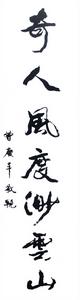 奇人風度渺雲山
曾廣年敬輓